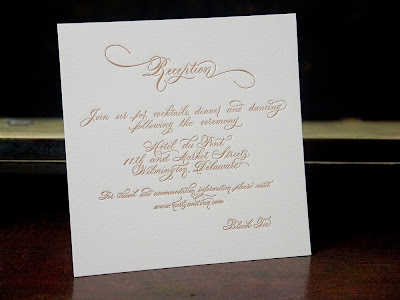 Reception
Join us for cocktails, dinner and dancing
following the ceremony
Hôtel du Pont
11th and Market Streets
Wilmington, Delaware
For travel and accommodation information please visit
Black Tie